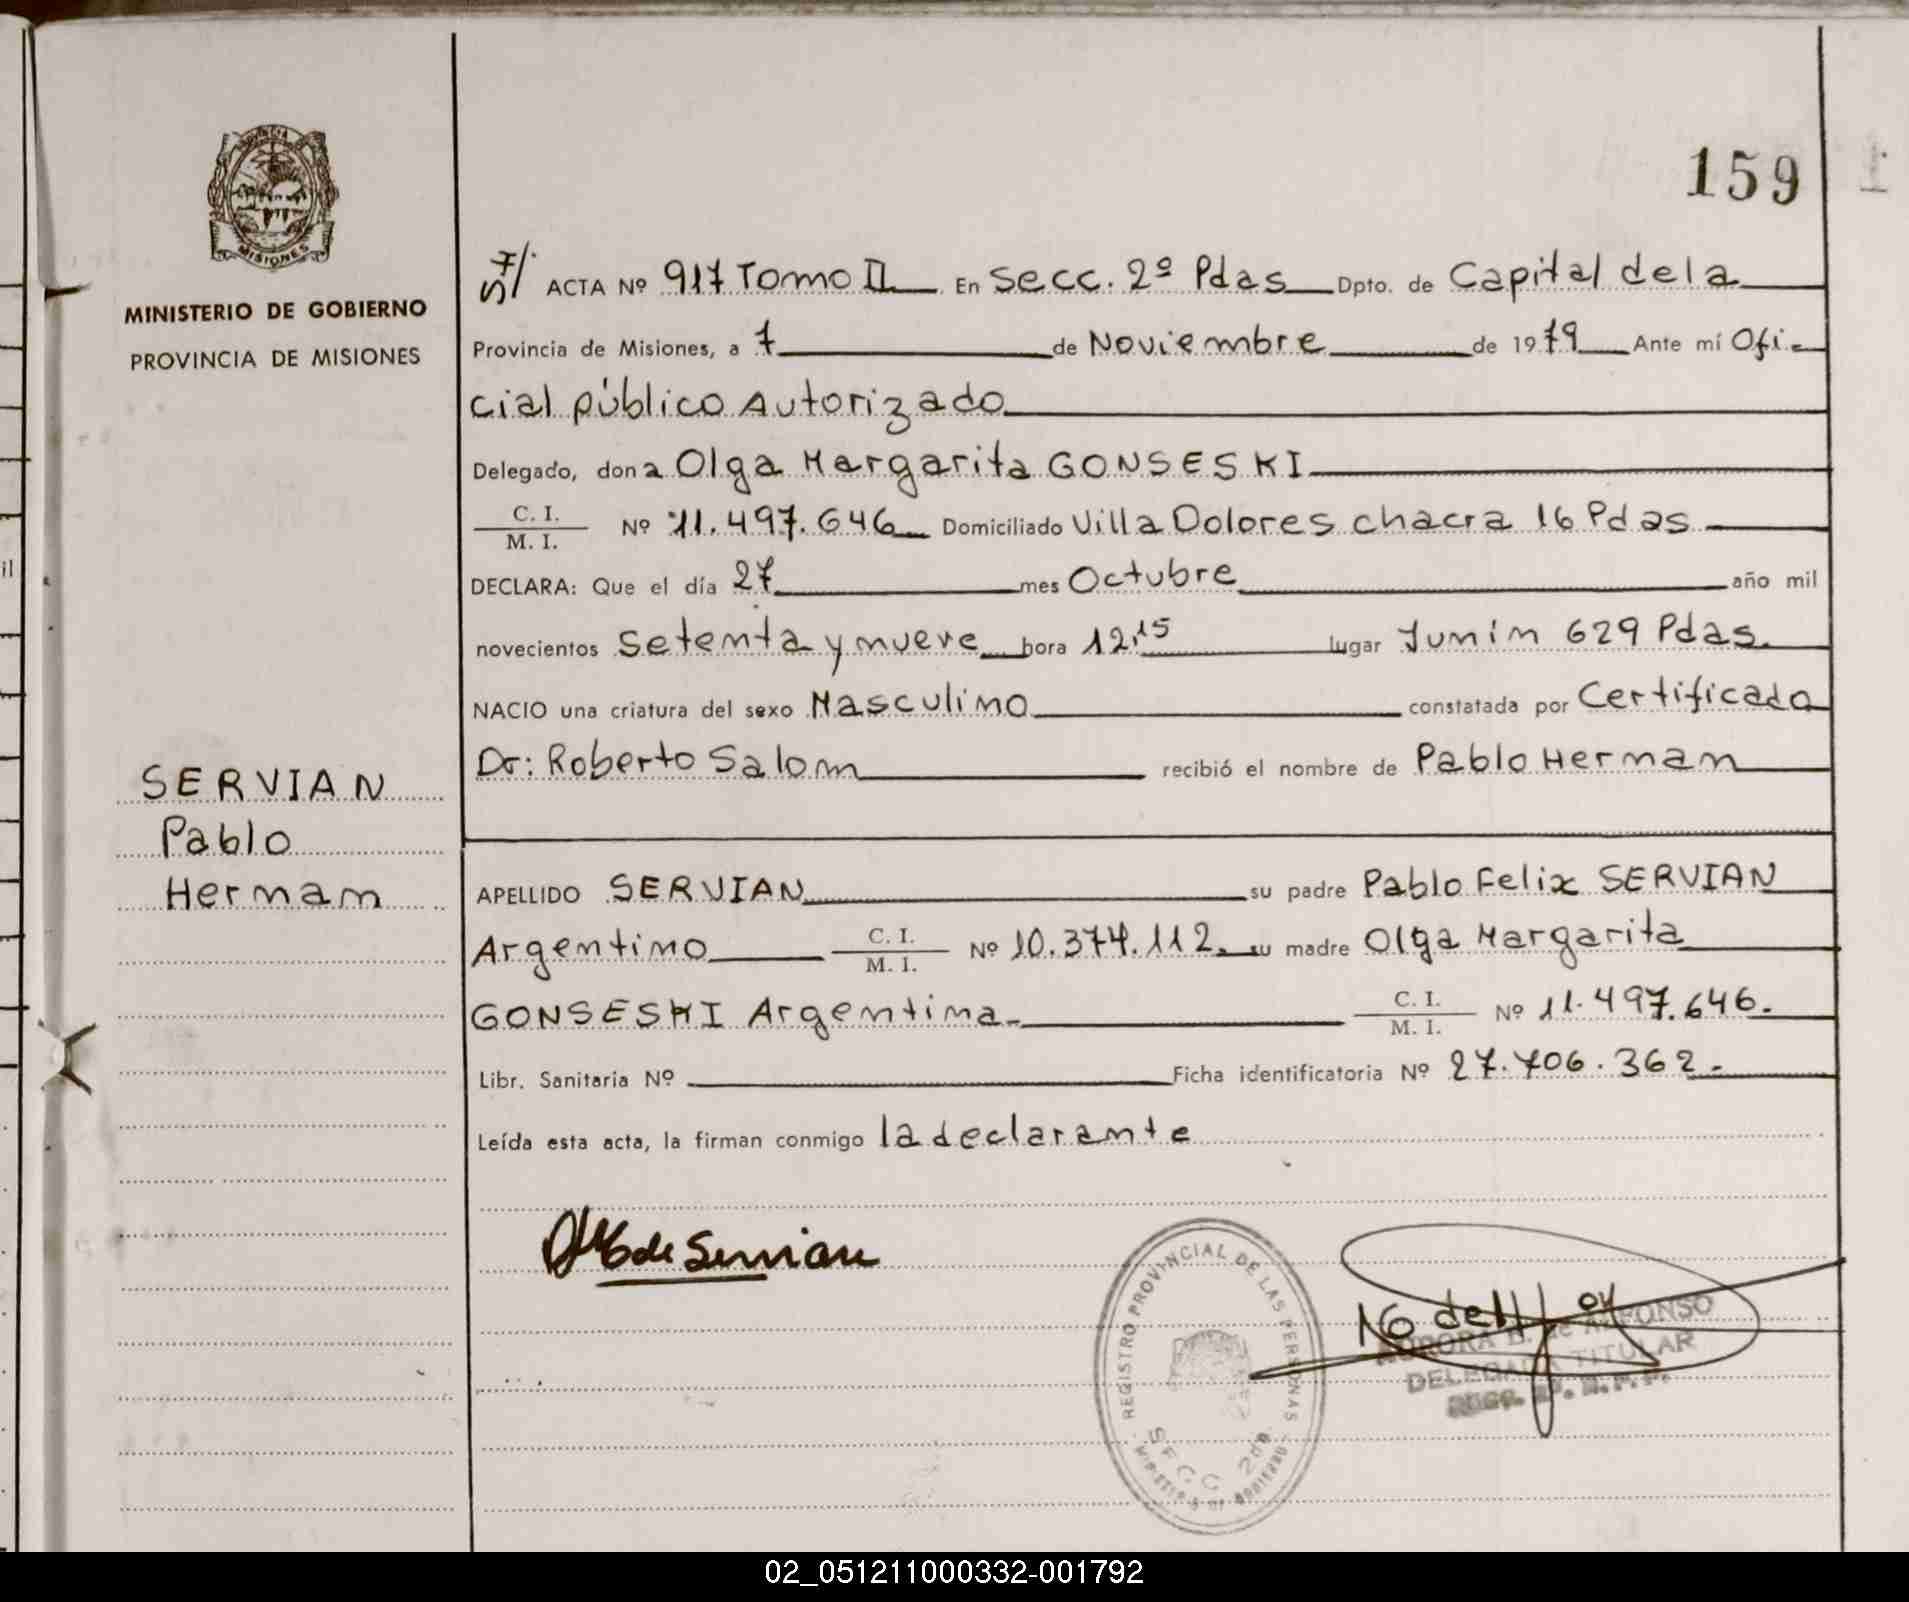 159
PROVINCIA
MISIONES
MINISTERIO DE GOBIERNO
PROVINCIA DE MISIONES
SERVIAN
Pablo
Hernan
ACTA Nº 917 Tomo II En Secc. 2º Pdas Dpto. de Capital de la
Provincia de Misiones, a 7 de Noviembre de 1979 Ante mí Ofi-
cial público Autorizado
Delegado, dona Olga Margarita GONSESKI
C. I.
M. I.
Nº 11.497.646 Domiciliado Villa Dolores chacra 16 Pdas
DECLARA: Que el día 27 mes Octubre año mil
novecientos setenta y nueve hora 12,15 lugar Junin 629 Pdas.
NACIO una criatura del sexo Masculino constatada por Certificado
Dr: Roberto Salom recibió el nombre de Pablo Hernan
APELLIDO SERVIAN su padre Pablo Felix SERVIAN
Argentino C. I. M. I. Nº 10.374.112. su madre Olga Margarita
GONSESKI Argentina- C. I. M. I. Nº 11.497.646.
Libr. Sanitaria Nº Ficha identificatoria Nº 27.706.362.-
Leída esta acta, la firman conmigo la declarante
de Servian
REGISTRO PROVINCIAL DE LAS PERSONAS
SECC 2da
AURORA de ALFONSO
DELEGADA TITULAR
02_051211000332-001792